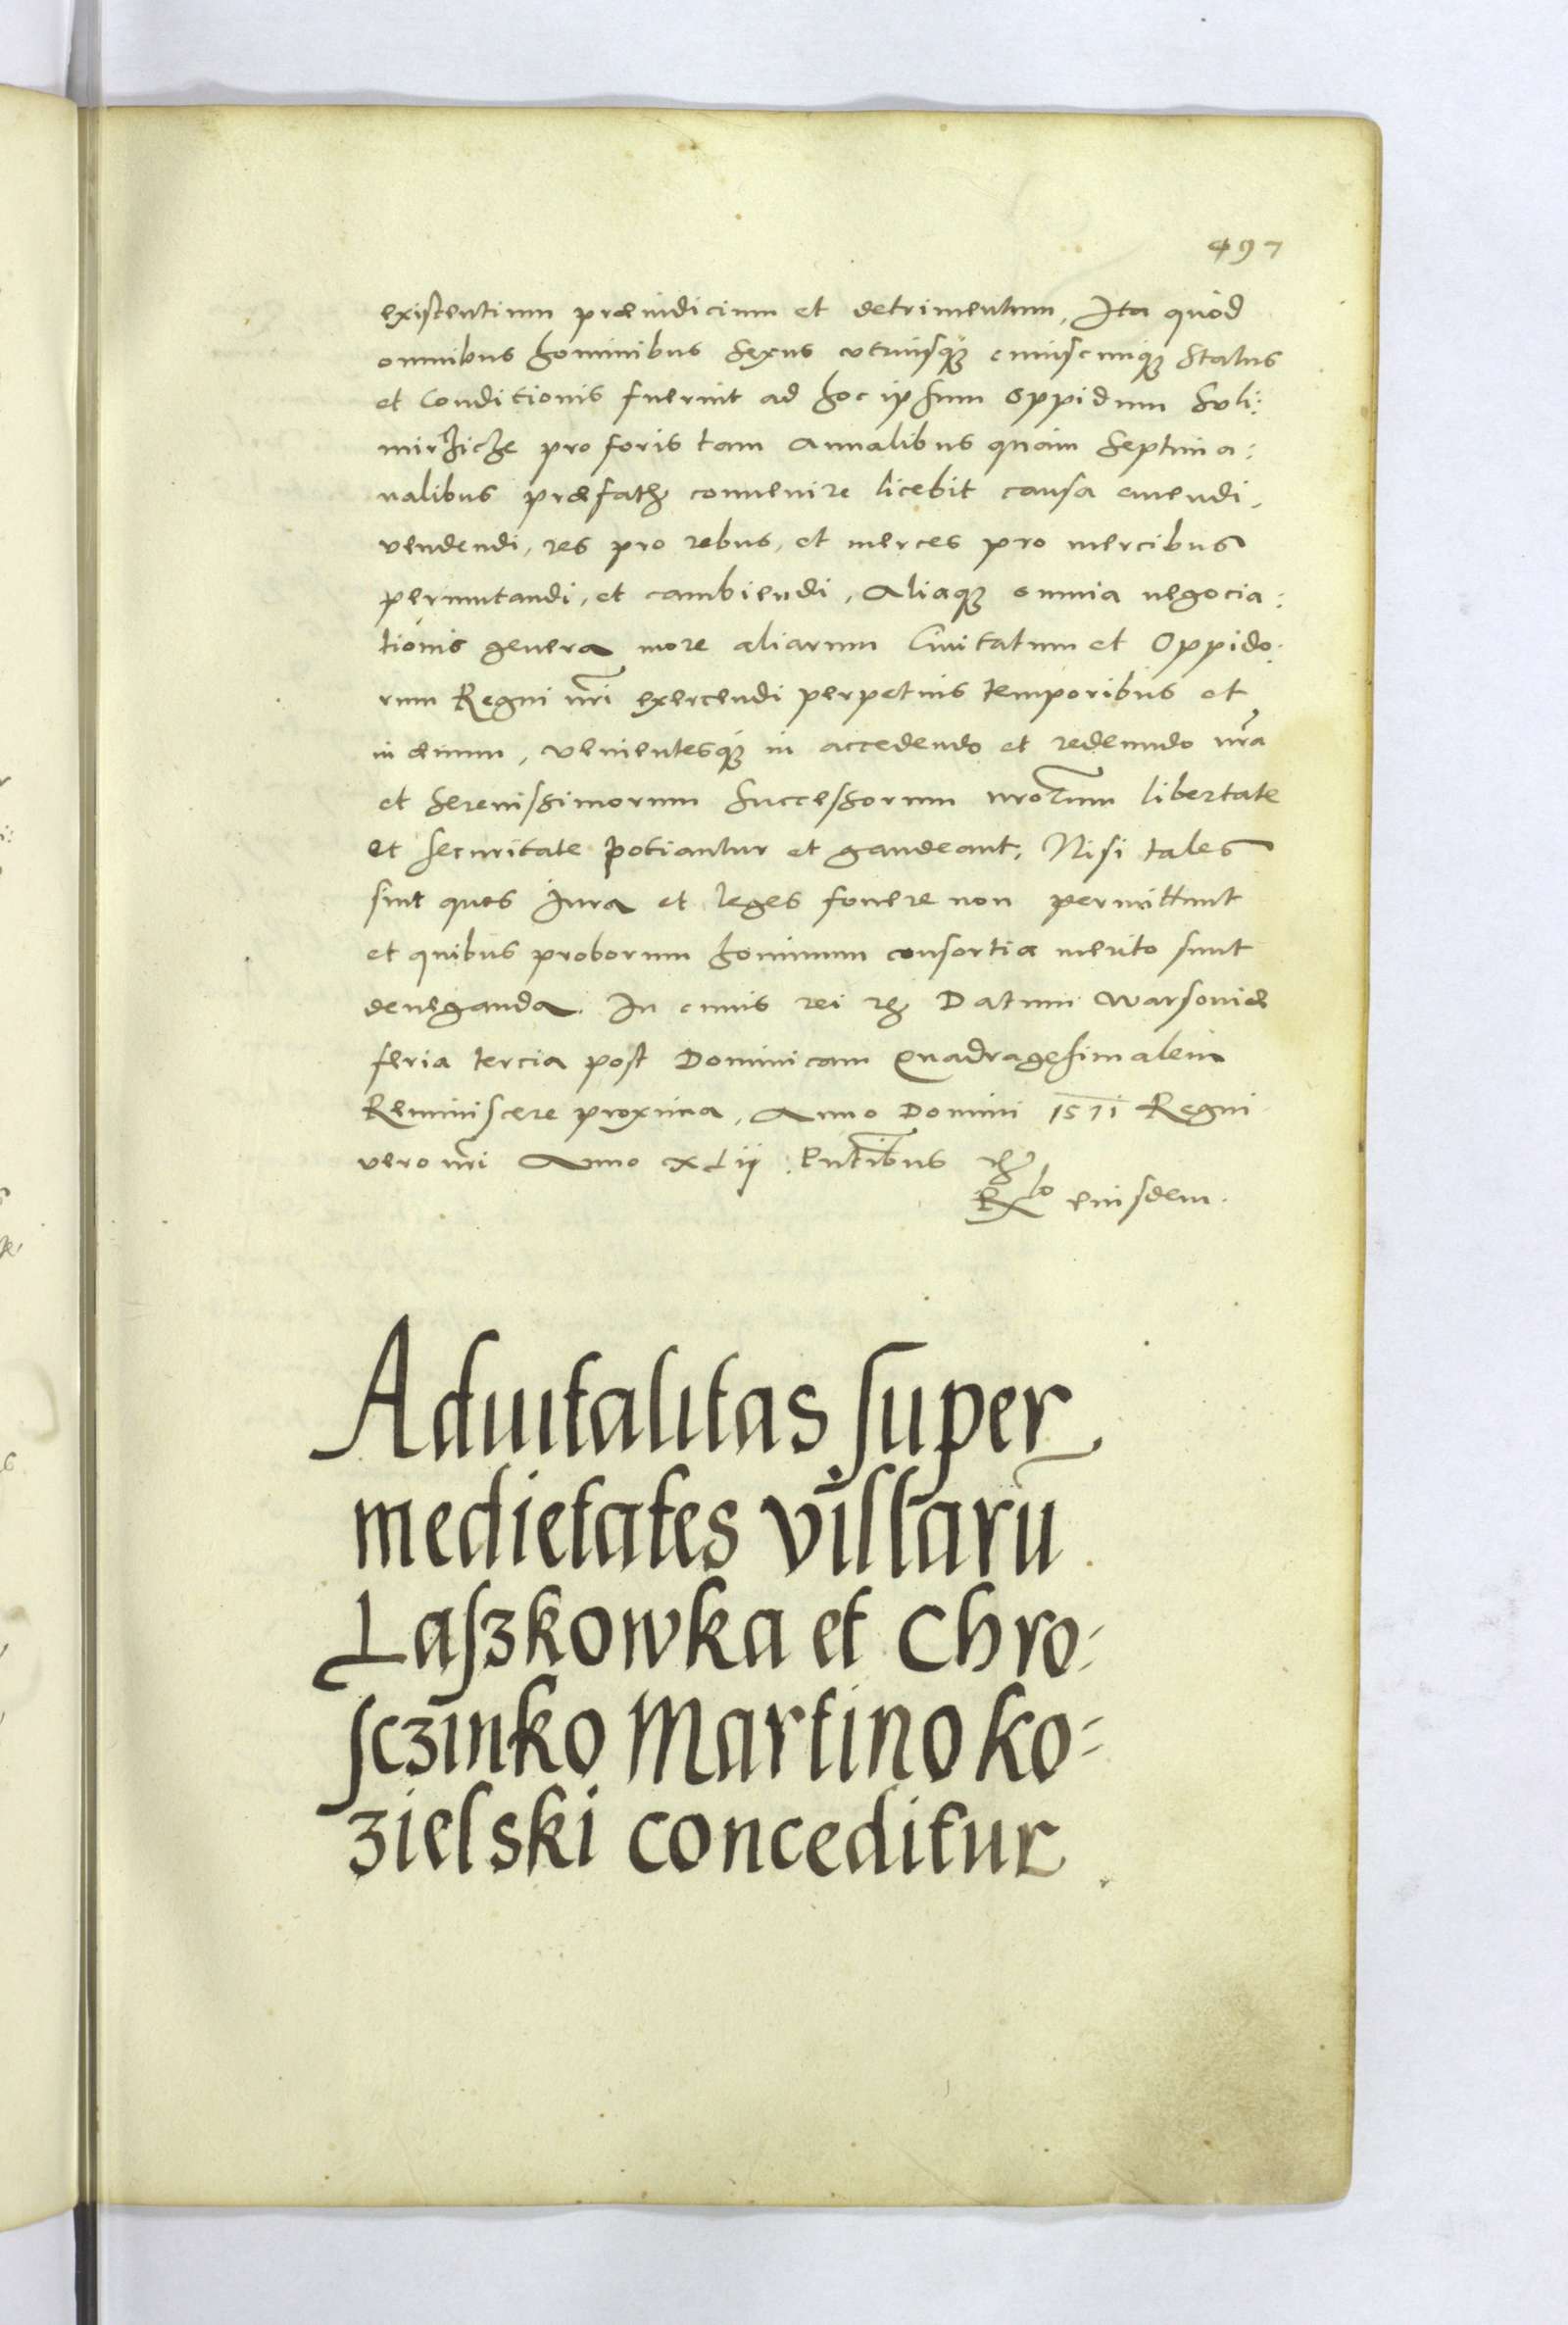 497
existentium præiudicium et detrimentum, Ita quòd
omnibus hominibus sexus vtriusq₃ cuiuscunq₃ status
et Conditionis fuerint ad hoc ipsum oppidum Suli:
mirzicze pro foris tam Annalibus quàm septima:
nalibus præfatis conuenire licebit causa emendi,
vendendi, res pro rebus, et merces pro mercibus
permutandi, et cambiendi, Aliaq₃ omnia negocia:
tionis genera more aliarum Ciuitatum et Oppido:
rum Regni nri exercendi perpetuis temporibus et
in æuum, venientesq₃ in accedendo et redeundo nra
et serenissimorum successorum nrorum libertate
et securitate potiantur et gaudeant, Nisi tales
sint quos Iura et leges fouere non permittunt
et quibus proborum hominum consortia merito sunt
deneganda. In cuius rei rz Datum Warsouiæ
feria tercia post Dominicam Quadragesimalem
Reminiscere proxima, Anno Domini 1571 Regni
vero nri Anno xlij Pntibus rz
Rlo eiusdem.
Aduitalitas super
medietates villarū
Laszkowka et Chro-
sczinko Martino Ko-
zielski conceditur